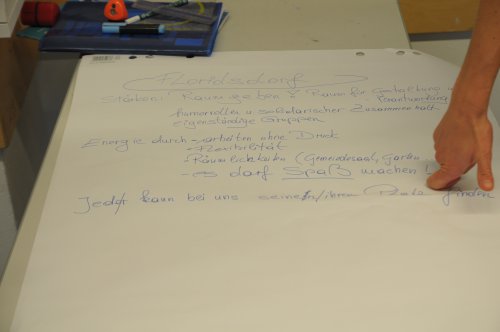 Floridsdorf
Stärken: Raum geben & Raum für Gestaltung u
- Verantwortung
humorvoller u solidarischer Zusammenhalt
eigenständige Gruppen
Energie durch - arbeiten ohne Druck
- Flexibilität
- Räumlichkeiten (Gemeindesaal, Garten
- es darf Spaß machen!
Jede/r kann bei uns seinen/ihren finden